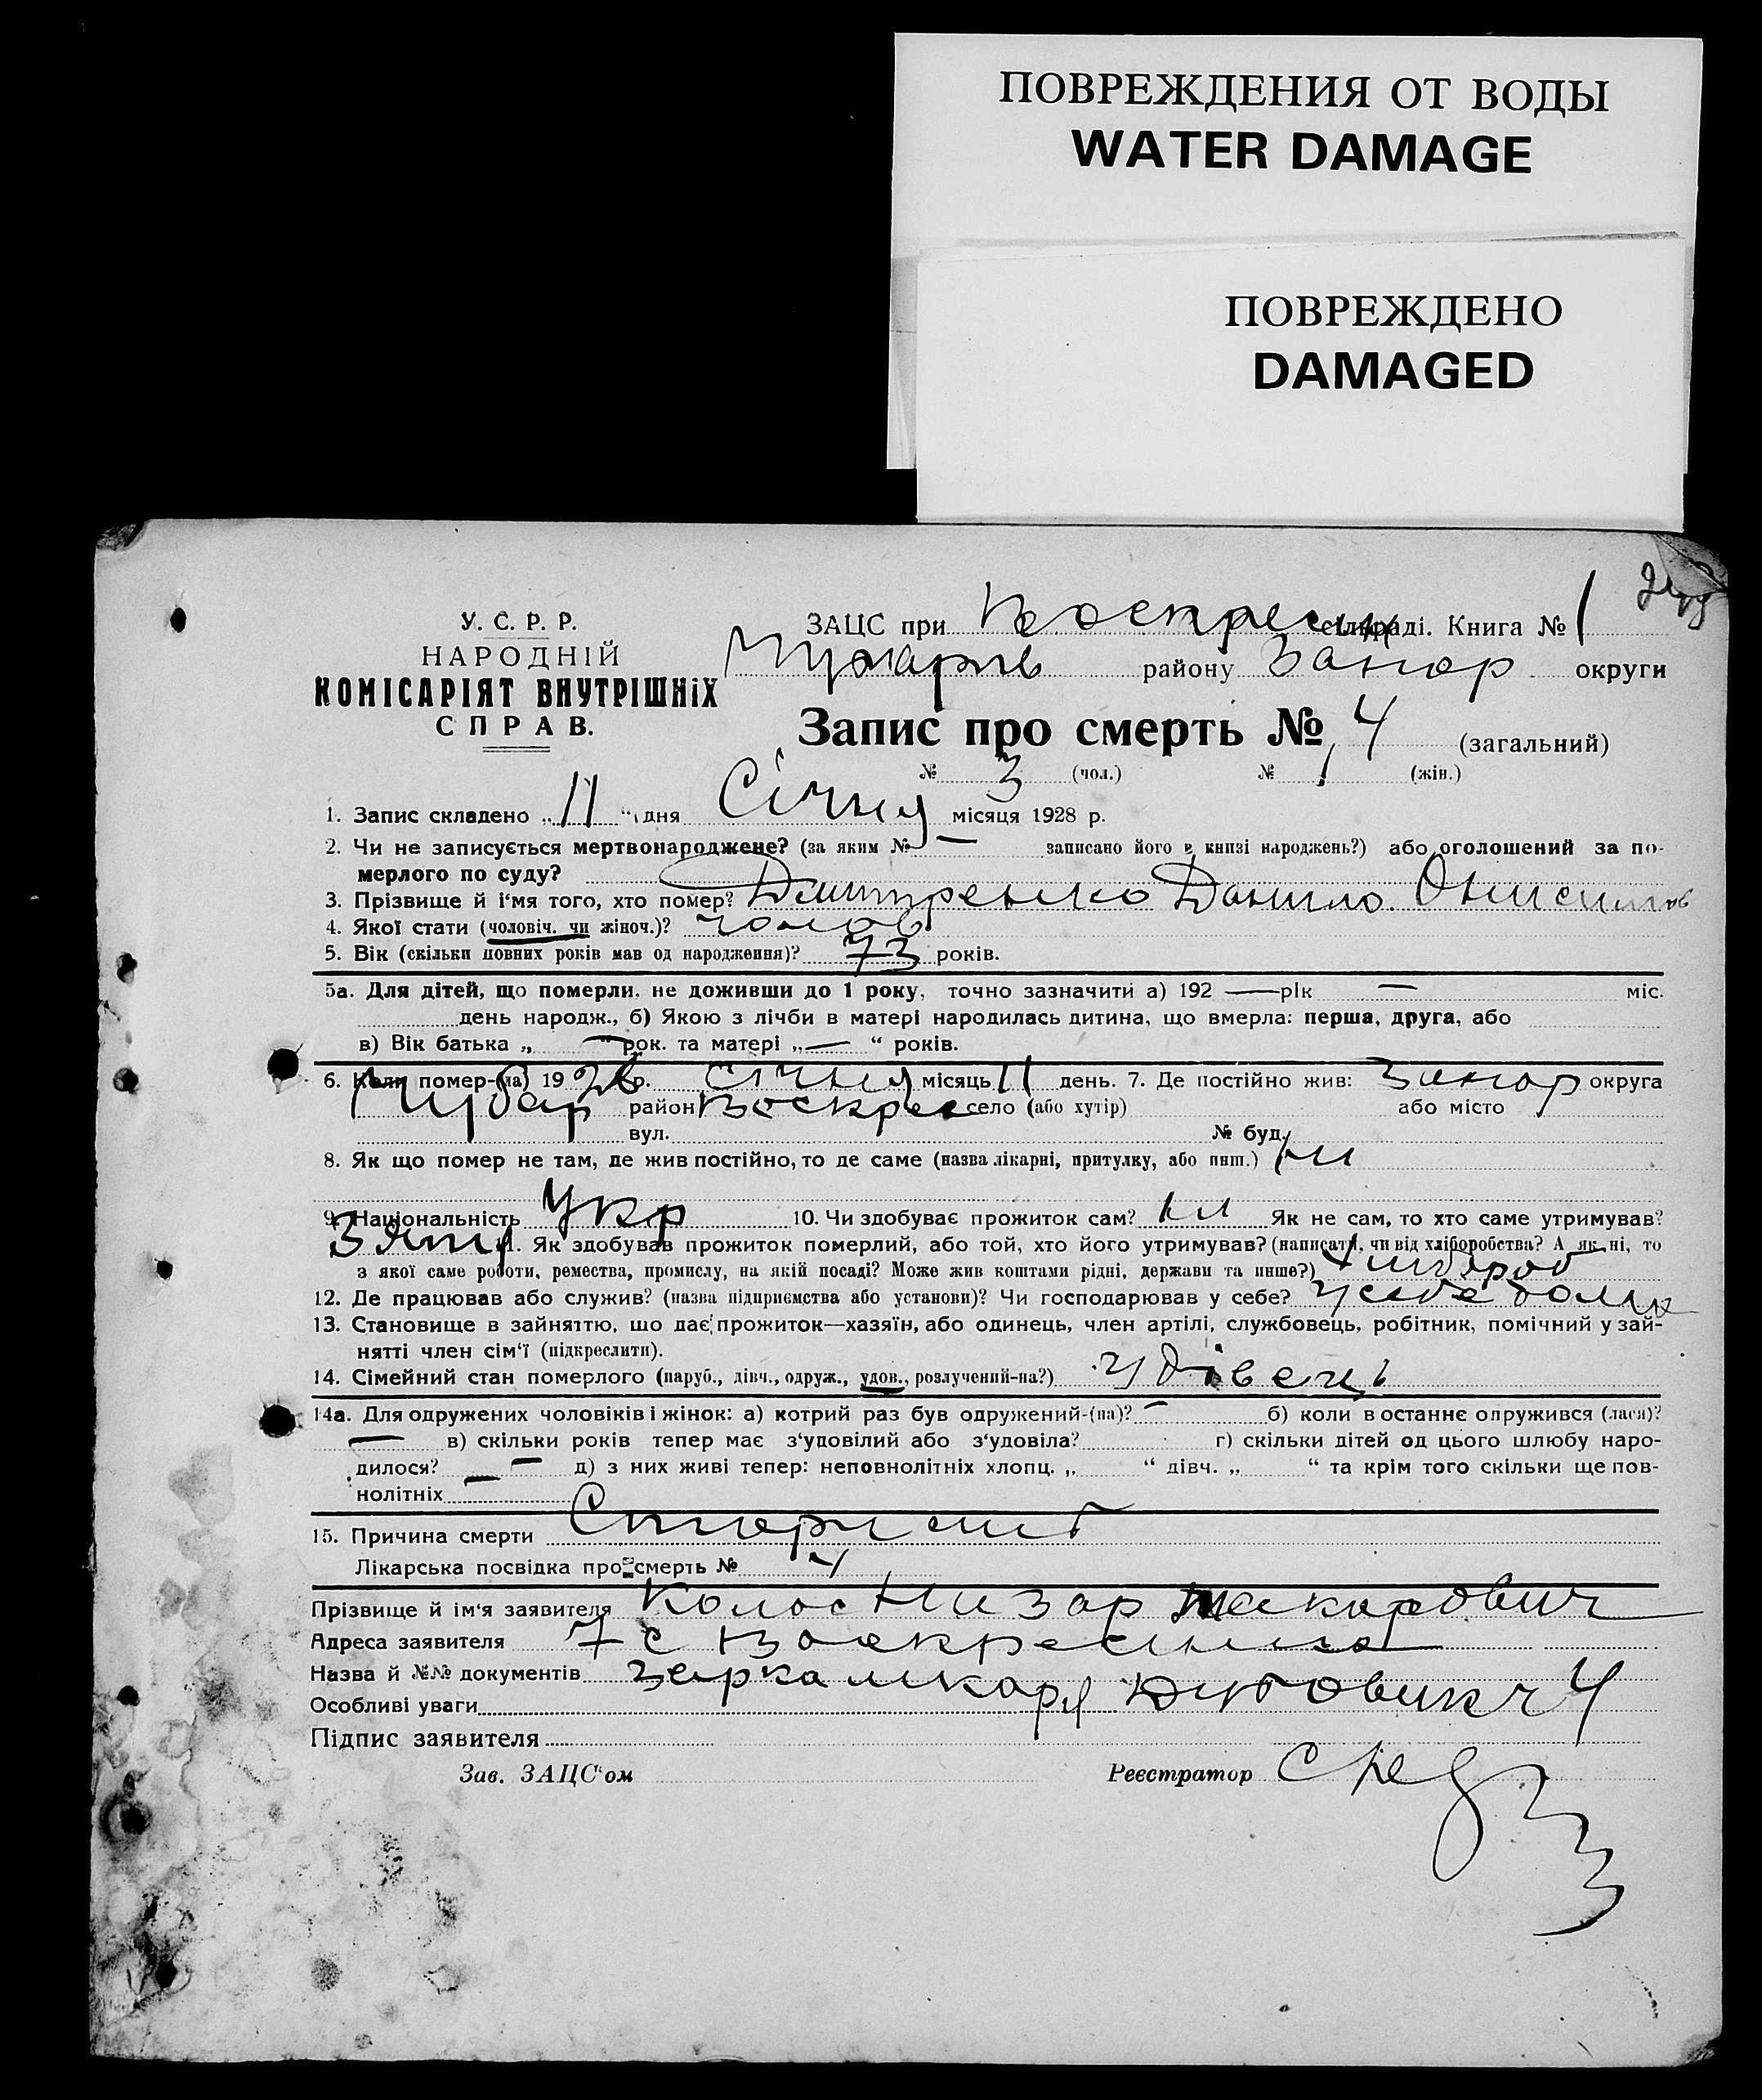 ПОВРЕЖДЕНИЯ ОТ ВОДЫ
WATER DAMAGE
ПОВРЕЖДЕНО
DAMAGED
У. С. Р. Р.
НАРОДНІЙ
КОМІСАРІЯТ ВНУТРІШНІХ
СПРАВ.
ЗАЦС при Воскресен сільраді. Книга № 1
району Запор округи
Запис про смерть № 4 (загальний)
№ 3 (чол.) № 1 (жін.)
1. Запис складено „ 11 “ дня Січня місяця 1928 р.
2. Чи не записується мертвонароджене? (за яким № — записано його в книзі народжень?) або оголошений за по-
мерлого по суду?
3. Прізвище й і'мя того, хто помер? Дмитренко Данило Онисимов
4. Якої стати (чоловіч. чи жіноч.)? чолов
5. Вік (скільки повних років мав од народження)? 73 років.
5а. Для дітей, що померли, не доживши до 1 року, точно зазначити а) 192 — рік — міс.
день народж., б) Якою з лічби в матері народилась дитина, що вмерла: перша, друга, або
в) Вік батька „ — рок. та матері „ — “ років.
6. Коли помер-(ла) 1928 р. січня місяць 11 день. 7. Де постійно жив: Запор округа
Чубар район Воскрес село (або хутір) або місто
вул. № буд.
8. Як що помер не там, де жив постійно, то де саме (назва лікарні, притулку, або инш.)
9. Національність Укр 10. Чи здобуває прожиток сам? ні Як не сам, то хто саме утримував?
Зять 11. Як здобував прожиток померлий, або той, хто його утримував? (написати, чи від хліборобства? А як ні, то
з якої саме роботи, ремества, промислу, на якій посаді? Може жив коштами рідні, держави та инше?) хлібороб
12. Де працював або служив? (назва підприємства або установи)? Чи господарював у себе? у себе дома
13. Становище в зайняттю, що дає прожиток—хазяїн, або одинець, член артілі, службовець, робітник, помічний у зай-
нятті член сім'ї (підкреслити).
14. Сімейний стан померлого (паруб., дівч., одруж., удов., розлучений-на?) удівець
14а. Для одружених чоловіків і жінок: а) котрий раз був одружений-(на)? — б) коли в останнє одружився (лася)?
— в) скільки років тепер має з'удовілий або з'удовіла? г) скільки дітей од цього шлюбу наро-
дилося? — д) з них живі тепер: неповнолітніх хлопц. „ “ дівч. „ “ та крім того скільки ще пов-
нолітніх —
15. Причина смерти Старист
Лікарська посвідка про смерть № 4
Прізвище й ім'я заявителя Колос Назар Макарович
Адреса заявителя с Воскресенка
Назва й №№ документів лікаря
Особливі уваги
Підпис заявителя
Зав. ЗАЦС'ом Реєстратор